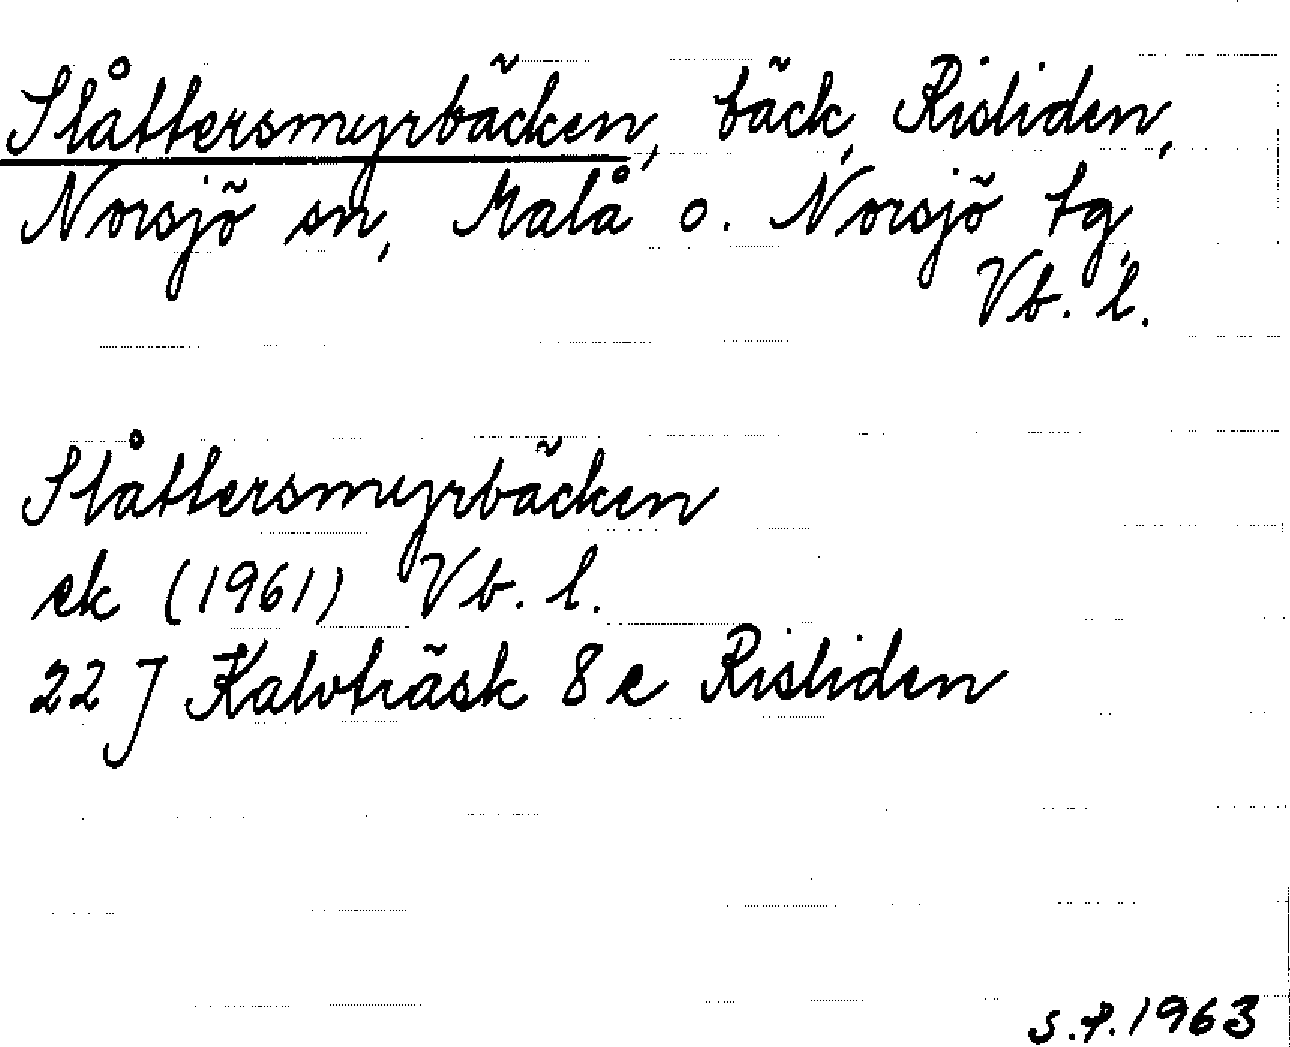 Slåttersmyrbäcken, bäck, Risliden,
Norsjö sn, Malå o. Norsjö tg,
Vb. l.
Slåttersmyrbäcken
ek (1961) Vb. l.
22 J Kalvträsk 8 e Risliden
s.f. 1963